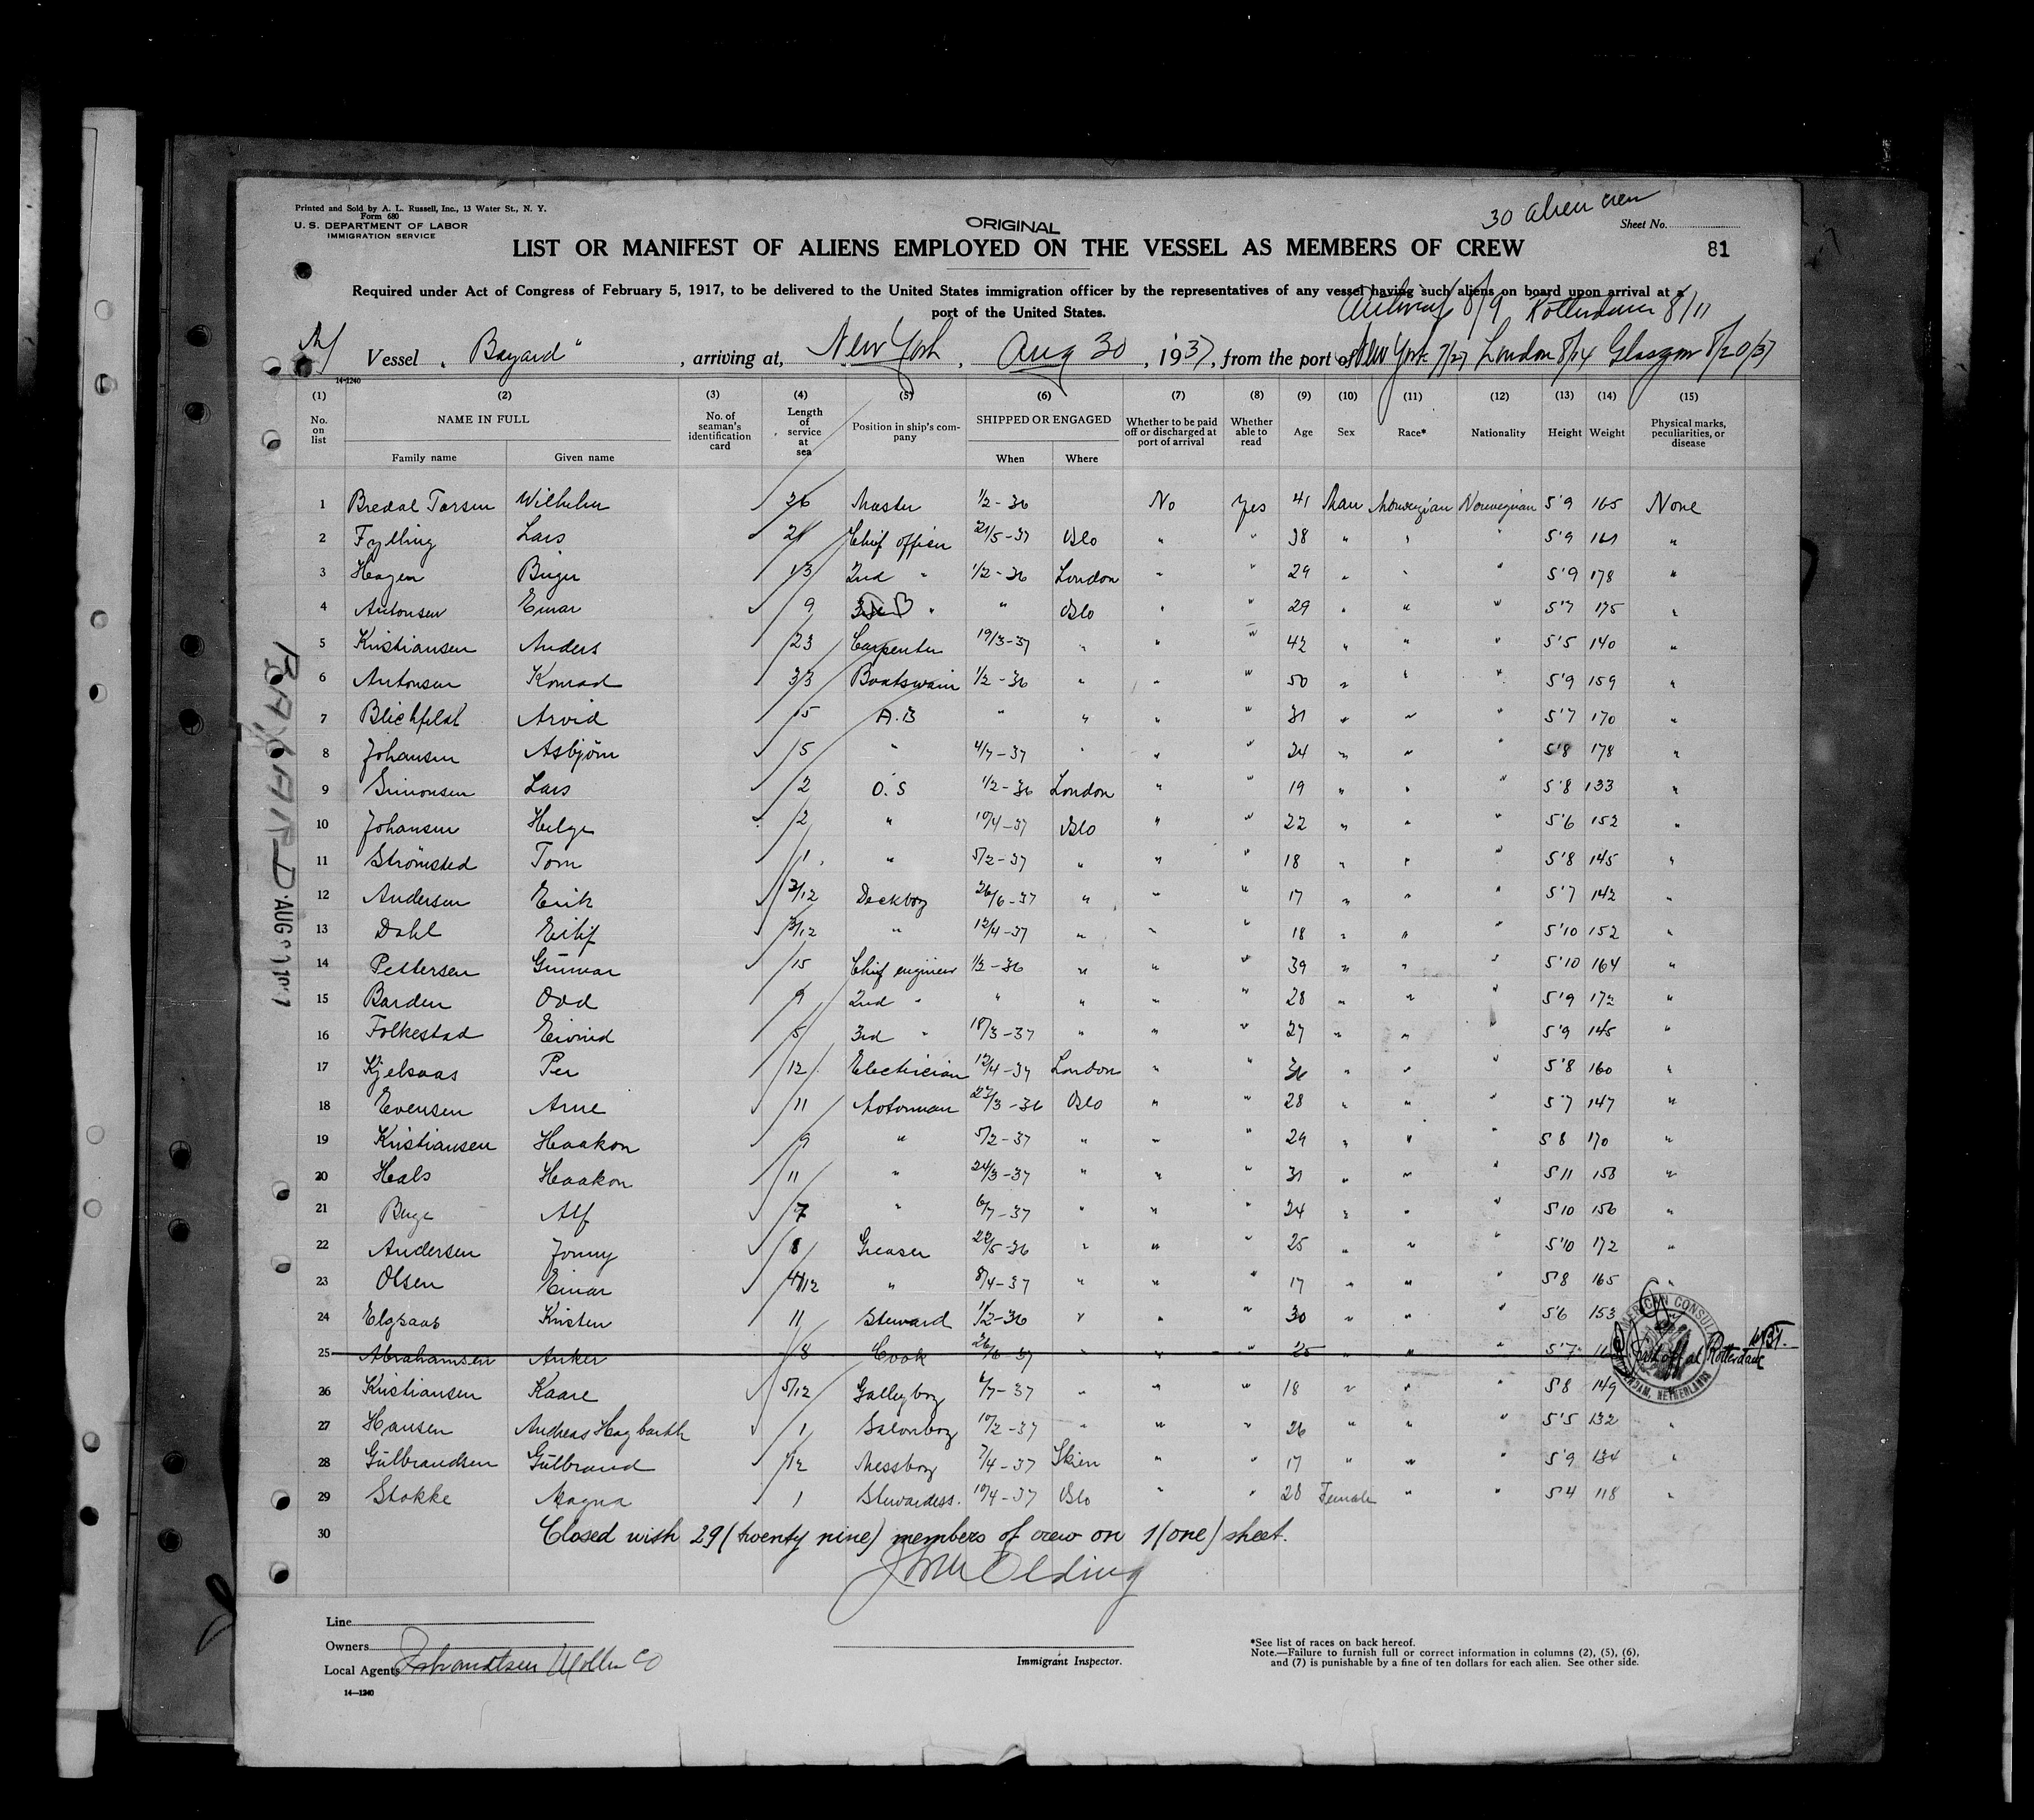 Printed and Sold by A. L. Russell, Inc., 13 Water St., N. Y.
Form 680
U. S. DEPARTMENT OF LABOR
IMMIGRATION SERVICE
ORIGINAL
30 alien crew
Sheet No.
LIST OR MANIFEST OF ALIENS EMPLOYED ON THE VESSEL AS MEMBERS OF CREW
81
Required under Act of Congress of February 5, 1917, to be delivered to the United States immigration officer by the representatives of any vessel having such aliens on board upon arrival at a
port of the United States.
8/9 Rotterdam 8/11
Vessel "Bayard", arriving at, New York, Aug 30, 1937, from the port of New York 7/27 London 8/14 Glasgow 8/20/37
14-1240
(1) (2) (3) (4) (5) (6) (7) (8) (9) (10) (11) (12) (13) (14) (15)
No. on list NAME IN FULL No. of seaman's identification card Length of service at sea Position in ship's company SHIPPED OR ENGAGED Whether to be paid off or discharged at port of arrival Whether able to read Age Sex Race* Nationality Height Weight Physical marks, peculiarities, or disease
Family name Given name When Where
1 Bredal Torsen Wilhelm 26 Master 1/2-36 No Yes 41 Man Norwegian Norwegian 5'9 165 None
2 Fylling Lars 21 Chief officer 21/5-37 Oslo " " 38 " " " 5'9 "
3 Hagen Birger 13 2nd " 1/2-36 London " " 29 " " " 5'9 178 "
4 Antonsen Einar 9 " " Oslo " " 29 " " " 5'7 175 "
5 Kristiansen Anders 23 Carpenter 19/3-37 " " " 42 " " " 5'5 140 "
6 Antonsen Konrad 33 Boatswain 1/2-36 " " " 50 " " " 5'9 159 "
7 Blichfeldt Arvid 15 A.B " " " " 31 " " " 5'7 170 "
8 Johansen Asbjörn 5 " 4/7-37 " " " 24 " " " 5'8 178 "
9 Simonsen Lars 2 O.S 1/2-36 London " " 19 " " " 5'8 133 "
10 Johansen Helge 2 " 10/4-37 Oslo " " 22 " " " 5'6 152 "
11 Strömsted Tom 1 " 5/2-37 " " " 18 " " " 5'8 145 "
12 Andersen Erik 2/12 Deckboy 26/6-37 " " " 17 " " " 5'7 142 "
13 Dahl Eilif 3/12 " 12/4-37 " " " 18 " " " 5'10 152 "
14 Pettersen Gunnar 15 Chief engineer 1/2-36 " " " 39 " " " 5'10 164 "
15 Barden Odd 9 2nd " " " " " 28 " " " 5'9 172 "
16 Folkestad Eivind 5 3rd " 18/3-37 " " " 27 " " " 5'9 145 "
17 Kjelsaas Per 12 Electrician 12/4-37 London " " 36 " " " 5'8 160 "
18 Evensen Arne 11 Motorman 23/3-36 Oslo " " 28 " " " 5'7 147 "
19 Kristiansen Haakon 9 " 5/2-37 " " " 29 " " " 5 8 170 "
20 Hals Haakon 11 " 24/3-37 " " " 31 " " " 5 11 158 "
21 Berge Alf 7 " 6/7-37 " " " 24 " " " 5'10 156 "
22 Andersen Jonny 8 Greaser 22/5-36 " " " 25 " " " 5'10 172 "
23 Olsen Einar 4/12 " 8/4-37 " " " 17 " " " 5'8 165 "
24 Elgsaas Kristen 11 Steward 1/2-36 " " " 30 " " " 5'6 153
25 Abrahamsen Anker 8 Cook 26/6-37 " " " 25 " " " 5'7 paid off at Rotterdam
AMERICAN CONSUL
ROTTERDAM, NETHERLANDS
26 Kristiansen Kaare 5/12 Galleyboy 6/7-37 " " " 18 " " " 5'8 149 "
27 Hansen Andreas Hagbarth 1 Salonboy 10/2-37 " " " 26 " " " 5'5 132 "
28 Gulbrandsen Gulbrand 1/12 Messboy 7/4-37 Skien " " 17 " " " 5'9 134 "
29 Stokke Magna 1 Stewardess. 10/4-37 Oslo " " 28 Female " " 5'4 118 "
30 Closed with 29 (twenty nine) members of crew on 1 (one) sheet.
BAYARD AUG
Line
Owners
Local Agents
Immigrant Inspector.
*See list of races on back hereof.
Note.—Failure to furnish full or correct information in columns (2), (5), (6),
and (7) is punishable by a fine of ten dollars for each alien. See other side.
14—1240